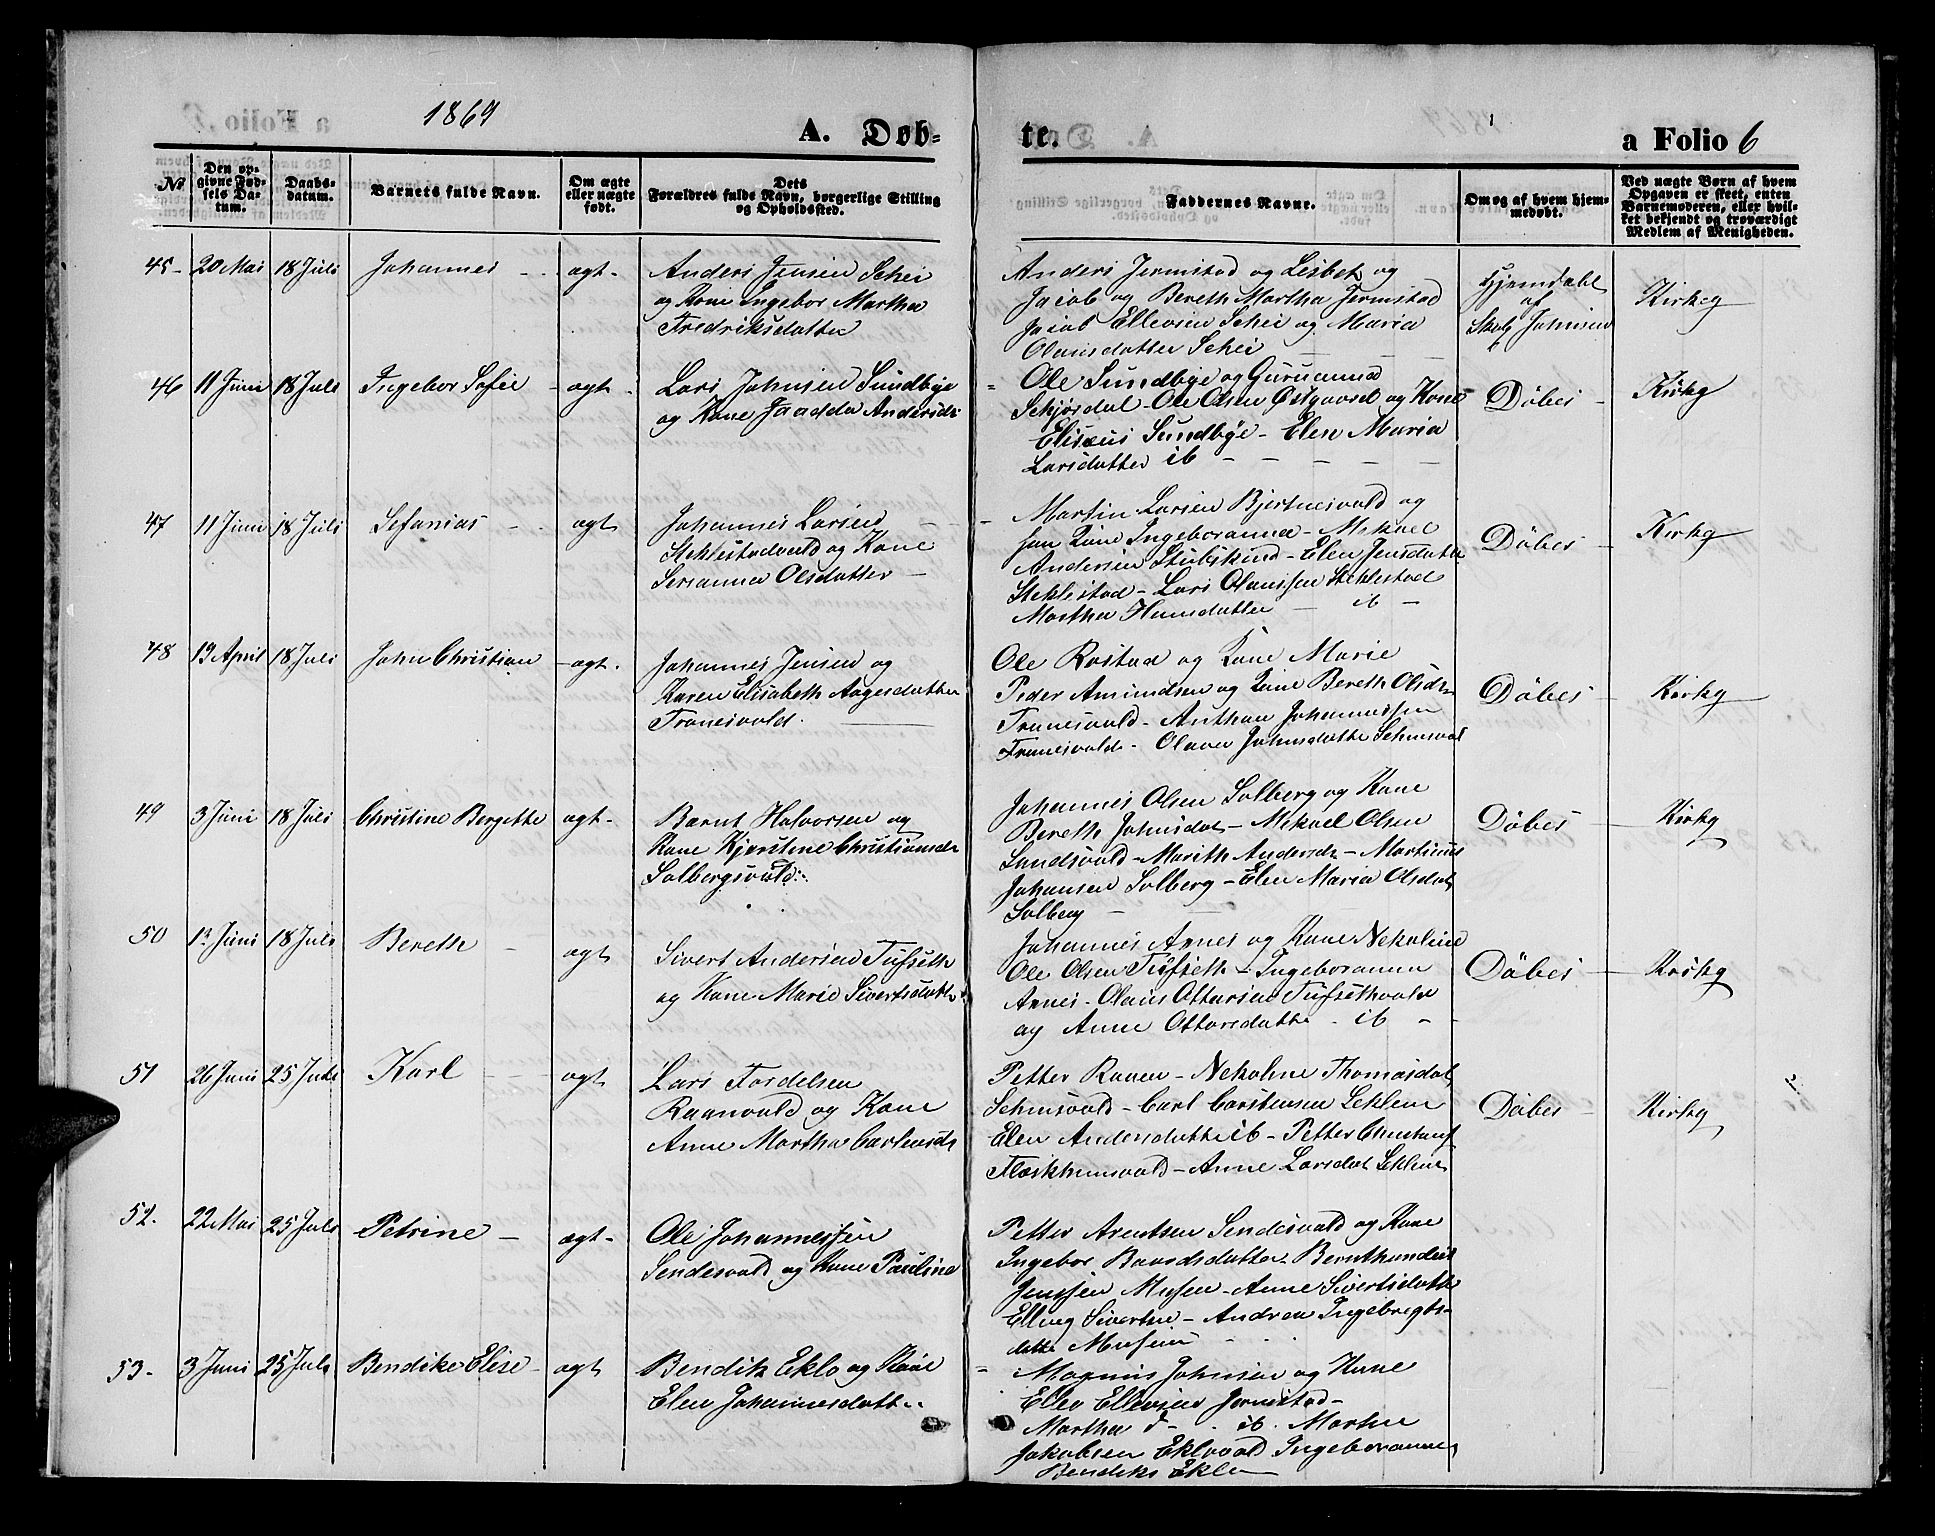 1869
A. Døb-
te.
a Folio 6
No.
Den op-
givne Fød-
sels Da-
tum.
Daabs-
datum.
Barnets fulde Navn.
Om ægte
eller uægte
født.
Dets
Forældres fulde Navn, borgerlige Stilling
og Opholdssted.
Faddernes Navne.
Om og af hvem hjem-
medøbt.
Ved uægte Børn af hvem
Opgaven er skeet, enten
Barnemoderen, eller hvil-
ket bekjendt og troværdigt
Medlem af Menigheden.
45- 20 Mai 18 Juli Johannes - - ægt-
Anders Jensen Schei
og Kone Ingebor Martha
Fredriksdatter
Anders Jermstad og Lisbet og
Jacob og Bereth Martha Jermstad
Jacob Ellevsen Schei og Maria
Olausdatter Schei
Hjemdøbt
af
Johnsen
Kirkeg
46 11 Juni 18 Juli Ingebor Sofie - ægt-
Lars Johnsen Sundbye
og Kone Jaadda Andersd:
Ole Sundbye og Gurianna
Schjørdal - Ole Olsen Østgaard og Kone
Elisæus Sundbye - Elen Maria
Larsdatter ib - - - - -
Döbes -
Kirkg
47 11 Juni 18 Juli Sefanias - - ægt
Johannes Larsen
Steklestadvald og Kone
Serianna Olsdatter -
Martin Larsen Bjertnesvald og
Kone Ingeboranna - Mekael
Andersen Stubskind - Elen Jensdatter
Steklestad - Lars Olaussen Steklestad
Martha Hansdatter - ib -
Döbes -
Kirkg
48 13 April 18 Juli John Christian - ægt.
Johannes Jensen og
Karen Elisabeth Aagesdatter
Tranesvald.
Ole Rostad og Kone Marie
Peder Amundsen og Kone Bereth Olsdr
Tranesvald - Anthon Johannessen
Tranesvald - Olava Johnsdatter Semsval
Döbes -
Kirkg
49 3 Juni 18 Juli Christine Bergette ægt-
Barnt Halvorsen og
Kone Kjerstine Christiansdr
Solbergsvald.
Johannes Olsen Solberg og Kone
Bereth Johnsdat - Mekael Olsen
Sundsvald - Marith Andersdr - Martinus
Johansen Solberg - Elen Maria Olsdat
Solberg - -
Döbes -
Kirkg
50 12 Juni 18 Juli Bereth - ægt
Sivert Andersen Tufseth
og Kone Marie Sivertsdatter
Johannes Arnes og Kone Nekoline
Ole Olsen Tufseth - Ingeboranna
Arnes - Olaus Ottersen Tufsethvald
og Anne Ottarsdatter - ib - -
Döbes -
Kirkg
51 26 Juni 25 Juli Karl - - ægt
Lars Tordelsen
Raanvald og Kone
Anne Martha Carlsensdr
Petter Raaen - Nekoline Thomasdat
Semsvald - Carl Carstensen Leklem
Elen Andersdatter ib - Petter
Anne Larsdat Leklem
Döbes -
Kirkg
52. 22 Mai 25 Juli Petrine - ægt-
Ole Johannessen
Sendesvald og Kone Pauline
Petter Arentsen Sendesvald og Kone
Ingebor Baardsdatter
Jenssen Musen - Anne Sivertsdatter
Ellveg Sivertsen - Andrea Ingebregts-
datter Musem
53- 3 Juni 25 Juli Bendikke Elise - ægt
Bendik Eklo og Kone
Elen Johannesdatter
Magnus Johnsen og Kone
Elev Ellevsen Jermstad -
Martha d - - ib. Marthe
Jakobsen Eklovald Ingeboranna
Bendiks Eklo